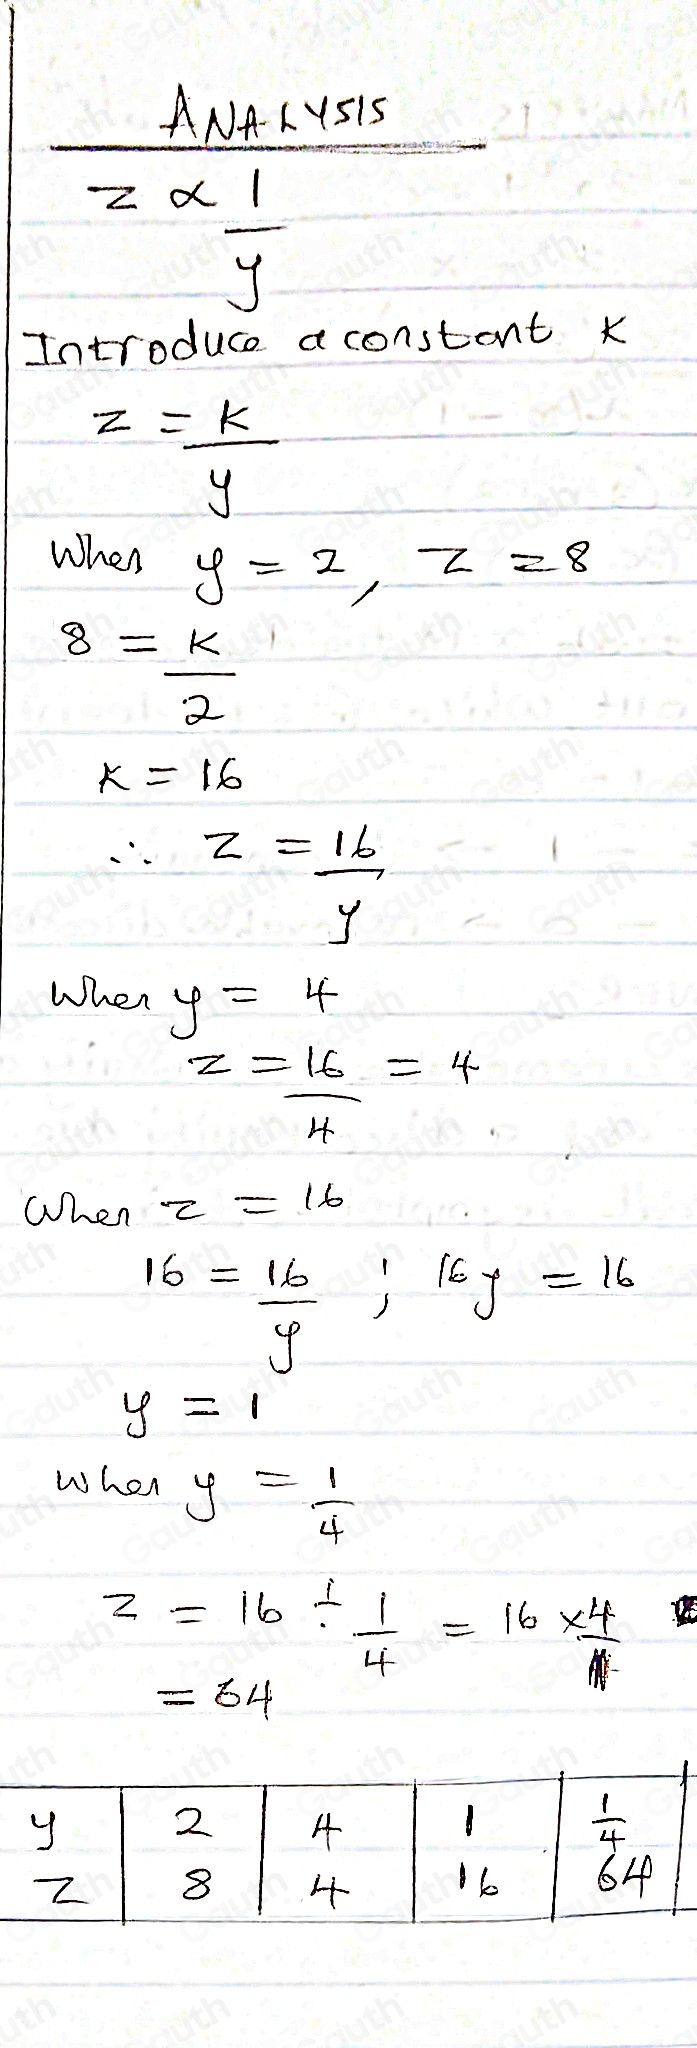 ANALYSIS
z ∝ 1/y
Introduce a constant k
z = k/y
When y = 2, z = 8
8 = k/2
k = 16
∴ z = 16/y
When y = 4
z = 16/4 = 4
When z = 16
16 = 16/y ; 16y = 16
y = 1
When y = 1/4
z = 16 ÷ 1/4 = 16 × 4/1
= 64
y 2 4 1 1/4
z 8 4 16 64